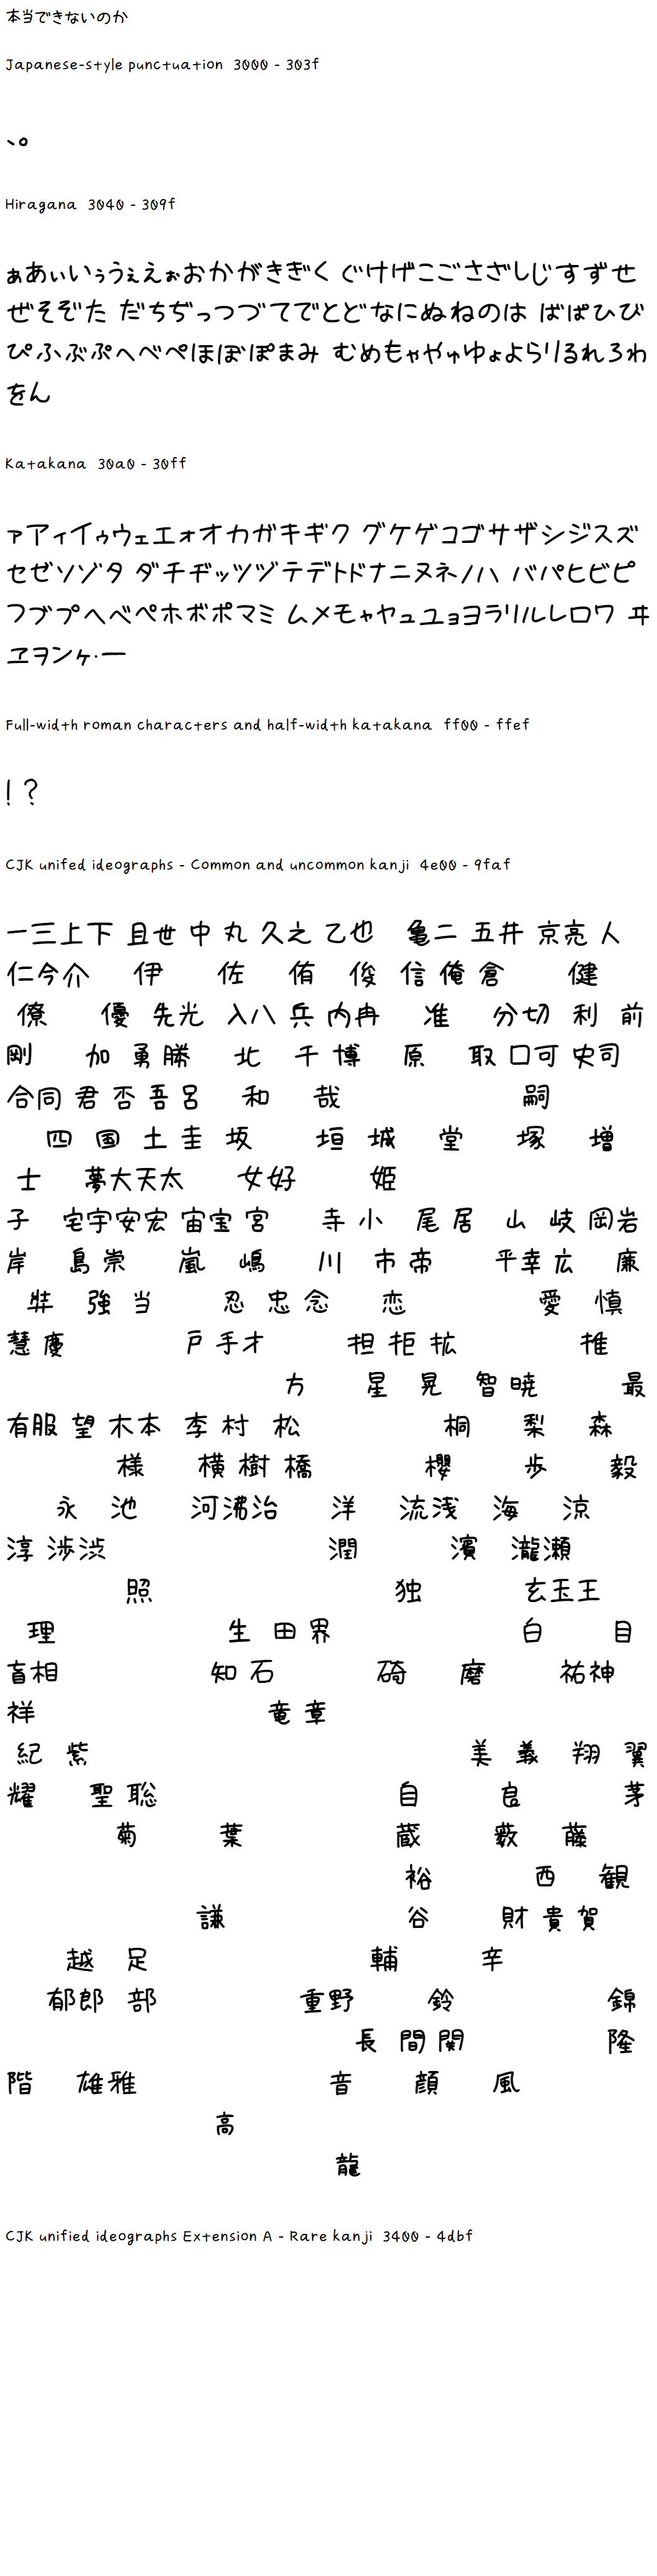 本当できないのか
Japanese-style punctuation 3000 - 303f
、。
Hiragana 3040 - 309f
ぁあぃいぅうぇえぉおかがきぎく ぐけげこごさざしじすずせ
ぜそぞた だちぢっつづてでとどなにぬねのは ばぱひび
ぴふぶぷへべぺほぼぽまみ むめもゃやゅゆょよらりるれろわ
をん
Katakana 30a0 - 30ff
ァアィイゥウェエォオカガキギク グケゲコゴサザシジスズ
セゼソゾタ ダチヂッツヅテデトドナニヌネノハ バパヒビピ
フブプヘベペホボポマミ ムメモャヤュユョヨラリルレロワ ヰ
ヱヲンヶ・ー
Full-width roman characters and half-width katakana ff00 - ffef
！？
CJK unifed ideographs - Common and uncommon kanji 4e00 - 9faf
一三上下 且世 中 丸 久之 乙也 亀二 五井 京亮 人
仁今介 伊 佐 侑 俊 信 俺 倉 健
僚 優 先光 入八 兵 内冉 准 分切 利 前
剛 加 勇 勝 北 千 博 原 取 口可 史司
合同 君 否 吾 呂 和 哉 嗣
四 国 土 圭 坂 垣 城 堂 塚 増
士 夢大天太 女好 姫
子 宅宇安宏 宙宝 宮 寺 小 尾 居 山 岐 岡岩
岸 島 崇 嵐 嶋 川 市 帝 平幸 広 廉
弉 強 当 忍 忠 念 恋 愛 慎
慧 慶 戸 手才 担 拒 拡 推
方 星 晃 智 暁 最
有服 望 木本 李 村 松 桐 梨 森
様 横 樹 橋 櫻 歩 毅
永 池 河沸治 洋 流浅 海 涼
淳 渉渋 潤 濱 瀧瀬
照 独 玄玉王
理 生 田 界 白 目
盲相 知 石 碕 磨 祐神
祥 竜 章
紀 紫 美 義 翔 翼
耀 聖 聡 自 良 茅
菊 葉 蔵 薮 藤
裕 西 観
謙 谷 財 貴 賀
越 足 輔 辛
郁郎 部 重野 鈴 錦
長 間 関 隆
階 雄雅 音 顔 風
高
龍
CJK unified ideographs Extension A - Rare kanji 3400 - 4dbf